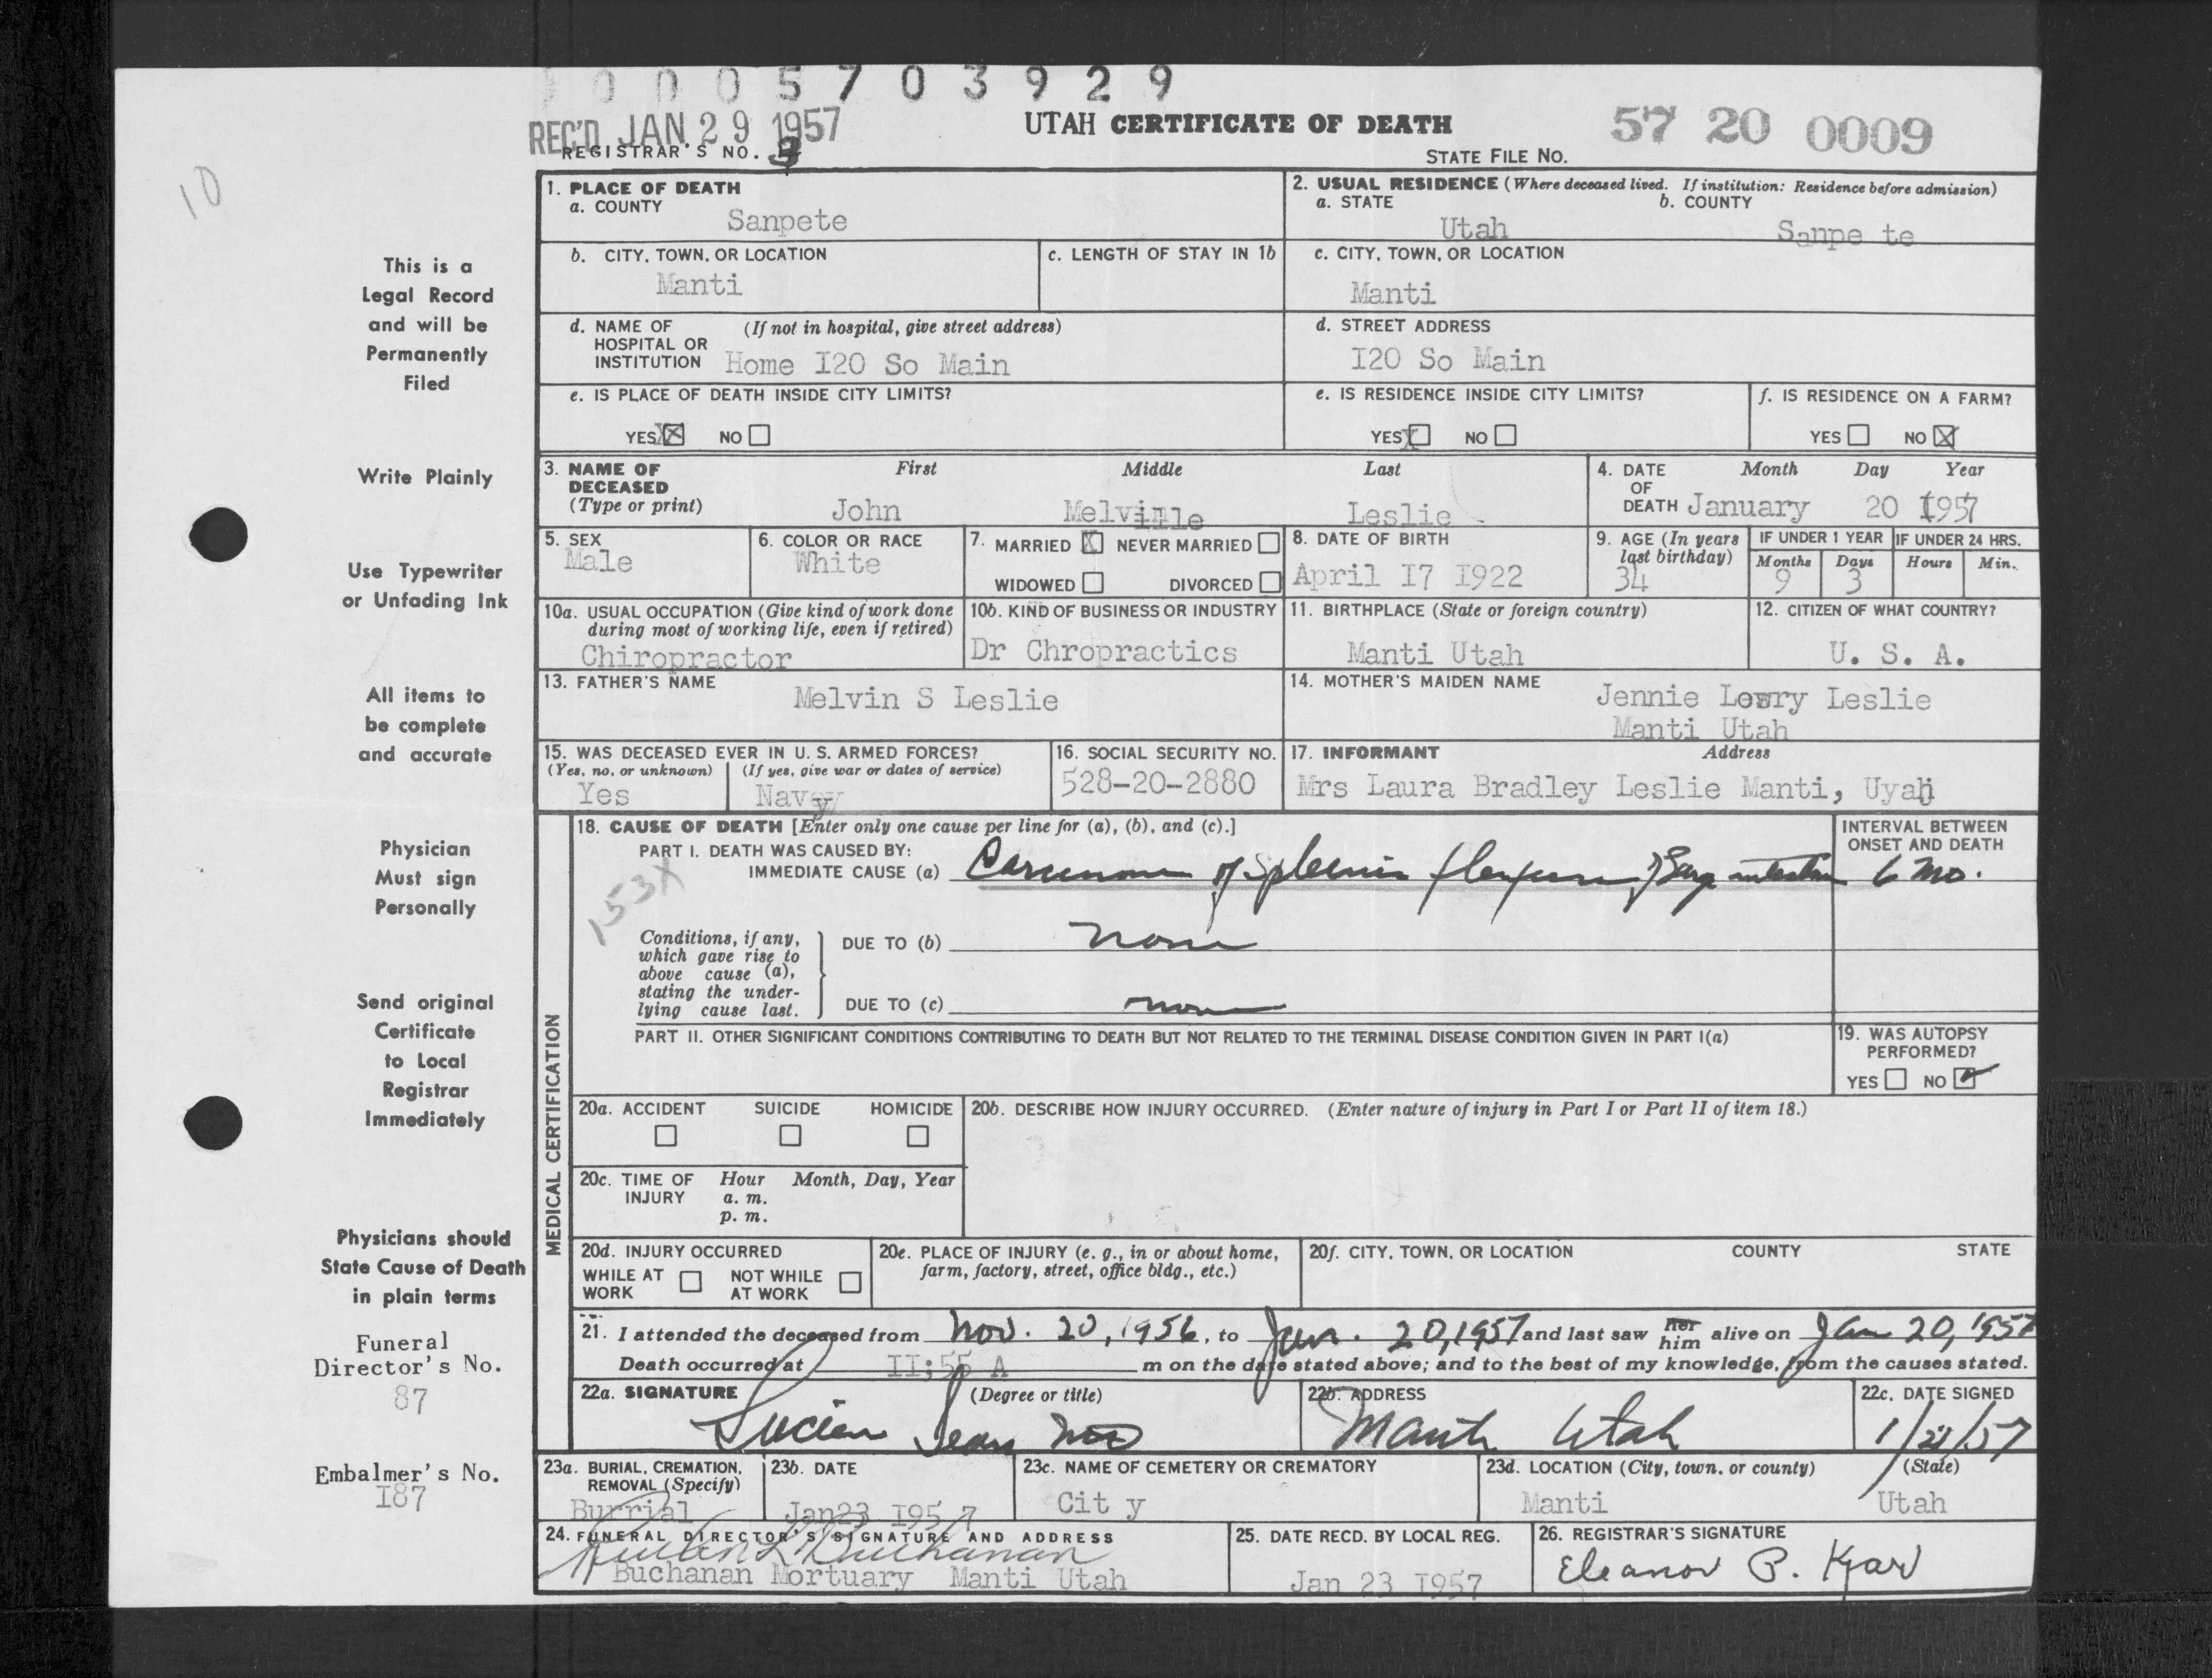 0 0 0 5 7 0 3 9 2 9
REC'D JAN. 29 1957
REGISTRAR'S NO. 3
UTAH CERTIFICATE OF DEATH
STATE FILE NO. 57 20 0009
10
This is a
Legal Record
and will be
Permanently
Filed
Write Plainly
Use Typewriter
or Unfading Ink
All items to
be complete
and accurate
Physician
Must sign
Personally
Send original
Certificate
to Local
Registrar
Immediately
Physicians should
State Cause of Death
in plain terms
Funeral
Director's No.
87
Embalmer's No.
I87
1. PLACE OF DEATH
a. COUNTY
Sanpete
2. USUAL RESIDENCE (Where deceased lived. If institution: Residence before admission)
a. STATE b. COUNTY
Utah Sanpe te
b. CITY, TOWN, OR LOCATION
Manti
c. LENGTH OF STAY IN 1b
c. CITY, TOWN, OR LOCATION
Manti
d. NAME OF (If not in hospital, give street address)
HOSPITAL OR
INSTITUTION Home I20 So Main
d. STREET ADDRESS
I20 So Main
e. IS PLACE OF DEATH INSIDE CITY LIMITS?
YES X NO
e. IS RESIDENCE INSIDE CITY LIMITS?
YES X NO
f. IS RESIDENCE ON A FARM?
YES NO X
3. NAME OF DECEASED
(Type or print)
First Middle Last
John Melville Leslie
4. DATE OF DEATH
Month Day Year
January 20 1957
5. SEX
Male
6. COLOR OR RACE
White
7. MARRIED X NEVER MARRIED
WIDOWED DIVORCED
8. DATE OF BIRTH
April I7 I922
9. AGE (In years last birthday)
34
IF UNDER 1 YEAR IF UNDER 24 HRS.
Months Days Hours Min.
9 3
10a. USUAL OCCUPATION (Give kind of work done
during most of working life, even if retired)
Chiropractor
10b. KIND OF BUSINESS OR INDUSTRY
Dr Chropractics
11. BIRTHPLACE (State or foreign country)
Manti Utah
12. CITIZEN OF WHAT COUNTRY?
U. S. A.
13. FATHER'S NAME
Melvin S Leslie
14. MOTHER'S MAIDEN NAME
Jennie Lowry Leslie
Manti Utah
15. WAS DECEASED EVER IN U. S. ARMED FORCES?
(Yes, no, or unknown) (If yes, give war or dates of service)
Yes Navy
16. SOCIAL SECURITY NO.
528-20-2880
17. INFORMANT Address
Mrs Laura Bradley Leslie Manti, Uyah
MEDICAL CERTIFICATION
18. CAUSE OF DEATH [Enter only one cause per line for (a), (b), and (c).]
PART I. DEATH WAS CAUSED BY:
IMMEDIATE CAUSE (a) Carcinoma of Spleenic flexure of Larg intestine
INTERVAL BETWEEN
ONSET AND DEATH
6 mo.
153X
Conditions, if any,
which gave rise to
above cause (a),
stating the under-
lying cause last.
DUE TO (b) none
DUE TO (c) none
PART II. OTHER SIGNIFICANT CONDITIONS CONTRIBUTING TO DEATH BUT NOT RELATED TO THE TERMINAL DISEASE CONDITION GIVEN IN PART I(a)
19. WAS AUTOPSY
PERFORMED?
YES NO ✓
20a. ACCIDENT SUICIDE HOMICIDE
20b. DESCRIBE HOW INJURY OCCURRED. (Enter nature of injury in Part I or Part II of item 18.)
20c. TIME OF INJURY
Hour Month, Day, Year
a. m.
p. m.
20d. INJURY OCCURRED
WHILE AT WORK NOT WHILE AT WORK
20e. PLACE OF INJURY (e. g., in or about home,
farm, factory, street, office bldg., etc.)
20f. CITY, TOWN, OR LOCATION COUNTY STATE
21. I attended the deceased from Nov. 20, 1956, to Jan. 20, 1957 and last saw her him alive on Jan 20, 1957
Death occurred at II;55 A m on the date stated above; and to the best of my knowledge, from the causes stated.
22a. SIGNATURE (Degree or title)
Lucien Sears MD
22b. ADDRESS
Manti Utah
22c. DATE SIGNED
1/21/57
23a. BURIAL, CREMATION,
REMOVAL (Specify)
Burrial
23b. DATE
Jan23 I957
23c. NAME OF CEMETERY OR CREMATORY
Cit y
23d. LOCATION (City, town, or county) (State)
Manti Utah
24. FUNERAL DIRECTOR'S SIGNATURE AND ADDRESS
Buchanan
Buchanan Mortuary Manti Utah
25. DATE RECD. BY LOCAL REG.
Jan 23 I957
26. REGISTRAR'S SIGNATURE
Eleanor P. Kjar